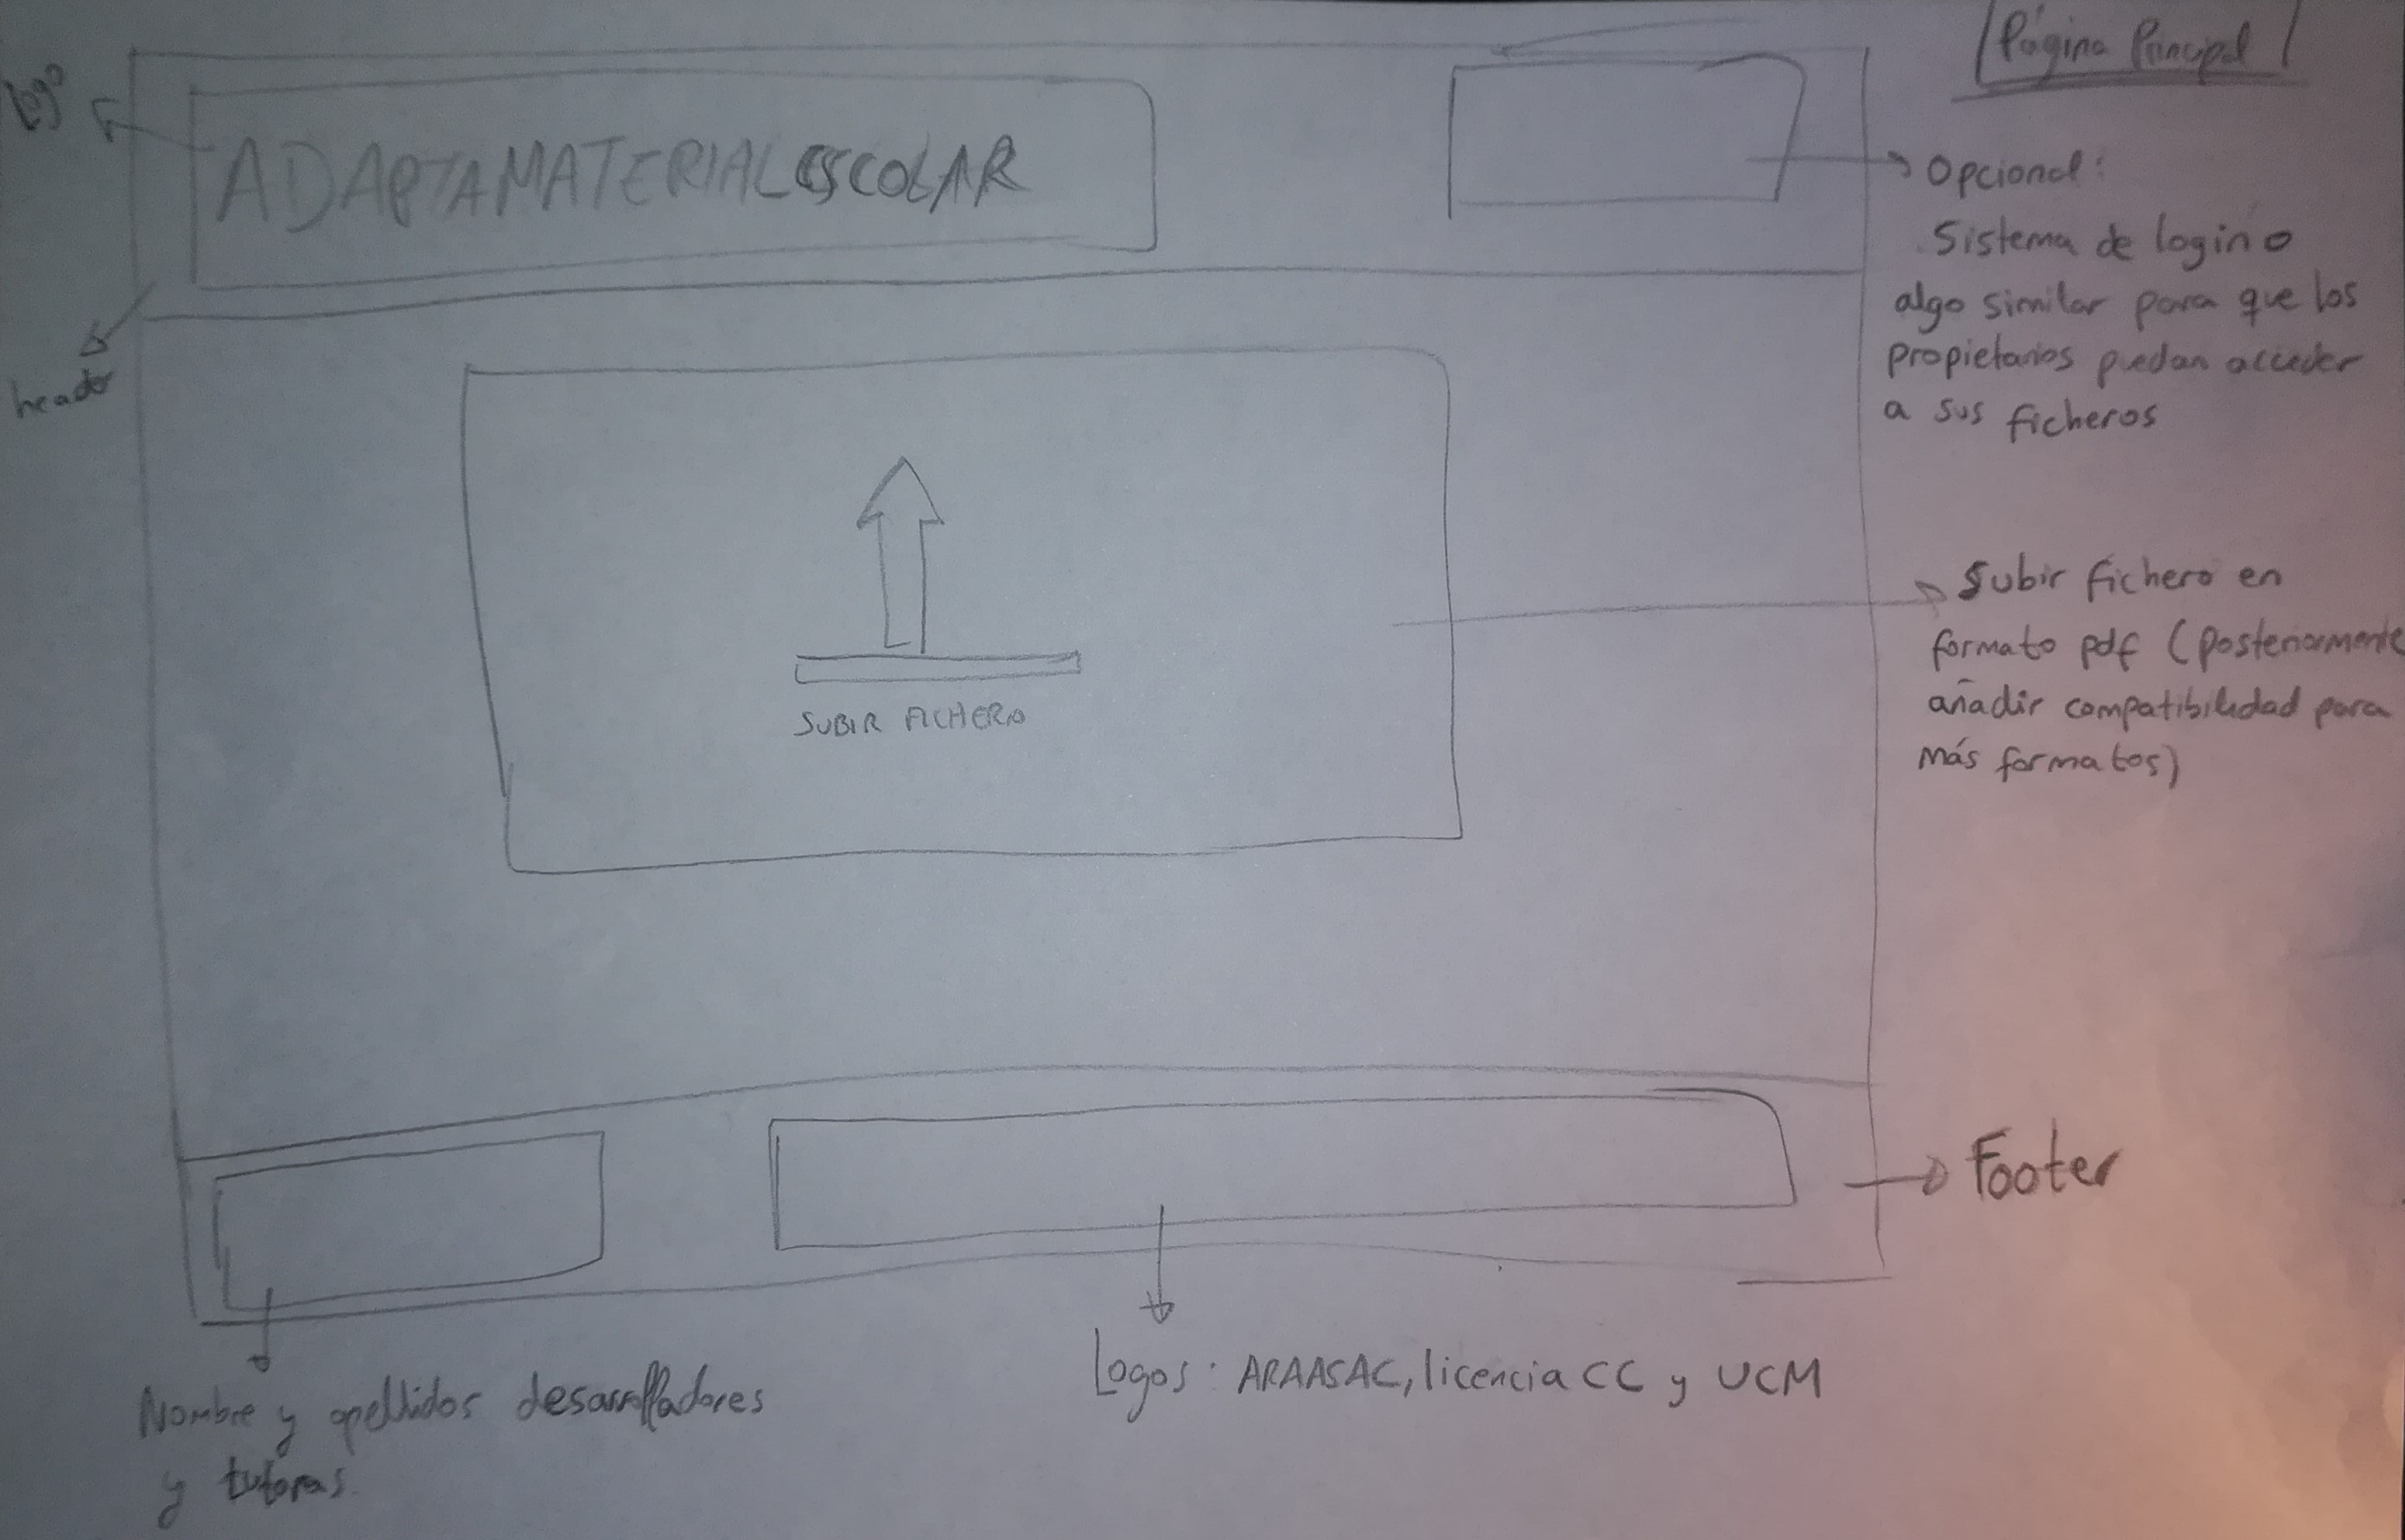 Página Principal
Logo
ADAPTAMATERIALESCOLAR
header
Opcional:
Sistema de login o
algo similar para que los
propietarios puedan acceder
a sus ficheros
SUBIR FICHERO
Subir fichero en
formato pdf (posteriormente
añadir compatibilidad para
más formatos)
Footer
Nombre y apellidos desarrolladores
y tutoras.
Logos: ARAASAC, licencia CC y UCM